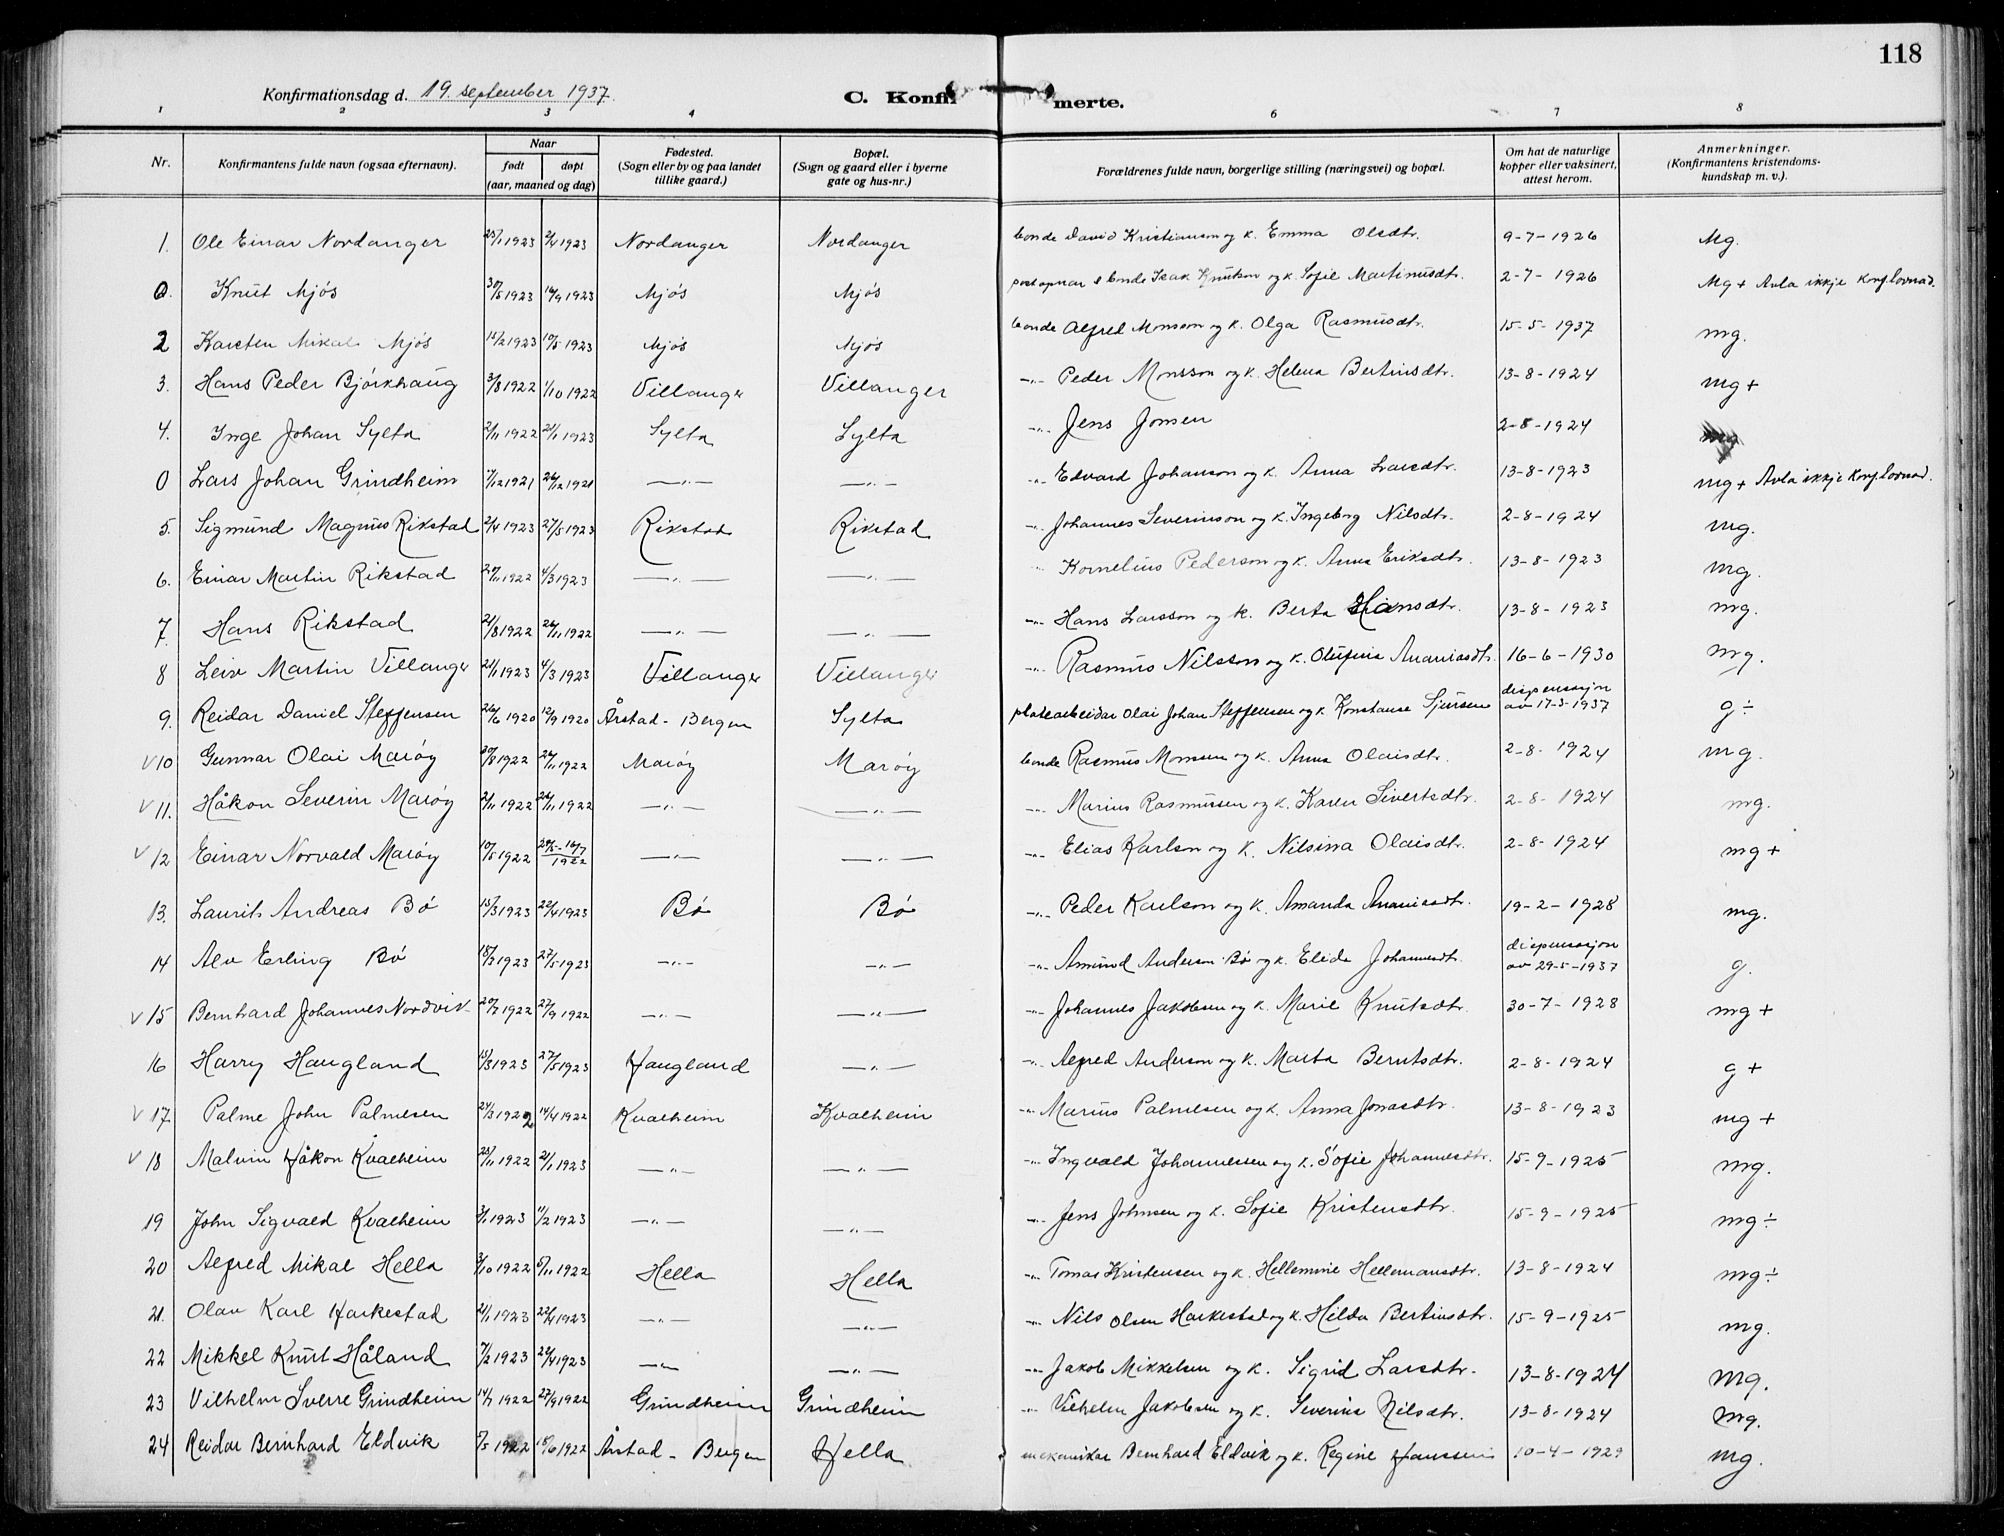 118
Konfirmationsdag d. 19. september 1937.
C. Konfirmerte.
1 2 3 4 6 7 8
Nr. Konfirmantens fulde navn (ogsaa efternavn). Naar født døpt (aar, maaned og dag) Fødested. (Sogn eller by og paa landet tillike gaard.) Bopæl. (Sogn og gaard eller i byerne gate og hus-nr.) Forældrenes fulde navn, borgerlige stilling (næringsvei) og bopæl. Om hat de naturlige kopper eller vaksinert, attest herom. Anmerkninger. (Konfirmantens kristendomskundskap m. v.).
1. Ole Einar Nordanger 25/1 1923 2/4 1923 Nordanger Nordanger bonde David Kristianson og k. Emma Olsdtr. 9-7-1926 Mg.
0. Knut Mjøs 30/5 1923 16/9 1923 Mjøs Mjøs postopnar & bonde Isak Knutson og k. Sofie Martinusdtr. 2-7-1926 Mg+ Avla ikkje konf.lovnad.
2 Karsten Mikal Mjøs 15/2 1923 10/5 1923 Mjøs Mjøs bonde Alfred Monsson og k. Olga Rasmusdtr. 15-5-1937 mg.
3. Hans Peder Bjørkhaug 3/8 1922 1/10 1922 Villanger Villanger -"- Peder Monsson og k. Helena Bertinsdtr. 13-8-1924 mg+
4. Inge Johan Sylta 2/11 1922 21/1 1923 Sylta Sylta -"- Jens Jonsen 2-8-1924
0 Lars Johan Grindheim 7/12 1921 26/12 1921 -"- -"- -"- Edvard Johanson og k. Anna Larsdtr. 13-8-1923 mg+ Avla ikkje konf.lovnad.
5. Sigmund Magnus Rikstad 2/4 1923 27/5 1923 Rikstad Rikstad -"- Johannes Severinson og k. Ingeborg Nilsdtr. 2-8-1924 mg.
6. Einar Martin Rikstad 29/11 1922 4/3 1923 -"- -"- -"- Kornelius Pederson og k. Anna Eriksdtr. 13-8-1923 mg.
7. Hans Rikstad 21/8 1922 26/11 1922 -"- -"- -"- Hans Larsson og k. Berta Hansdtr. 13-8-1923 mg.
8 Leiv Martin Villanger 21/1 1923 4/3 1923 Villanger Villanger -"- Rasmus Nilsson og k. Olufina Ananiasdtr. 16-6-1930 mg.
9. Reidar Daniel Steffensen 26/6 1920 12/9 1920 Årstad - Bergen Sylta platearbeidar Olai Johan Steffensen og k. Konstanse Sjursen dispensasjon av 17-3-1937 g÷
v 10 Gunnar Olai Marøy 30/8 1922 26/11 1922 Marøy Marøy bonde Rasmus Monsen og k. Anna Olaisdtr. 2-8-1924 mg.
v 11. Håkon Severin Marøy 2/11 1922 26/11 1922 -"- -"- -"- Marius Rasmussen og k. Karen Sivertsdtr. 2-8-1924 mg.
v 12 Einar Norvald Marøy 10/5 1922 20/5-16/7 1922 -"- -"- -"- Elias Karlson og k. Nilsina Olaisdtr. 2-8-1924 mg+
13. Laurits Andreas Bø 15/3 1923 22/4 1923 Bø Bø -"- Peder Karlson og k. Amanda Ananiasdtr. 19-2-1928 mg.
14 Alv Erling Bø 18/2 1923 27/5 1923 -"- -"- -"- Amund Anderson Bø og k. Elida Johannesdtr. dispensasjon av 29-5-1937 g.
v 15 Bernhard Johannes Nordvik 20/7 1922 27/9 1922 -"- -"- -"- Johannes Jakobsen og k. Marie Knutsdtr. 30-7-1928 mg+
16 Harry Haugland 15/3 1923 27/5 1923 Haugland -"- -"- Alfred Anderson og k. Marta Berntsdtr. 2-8-1924 g+
v 17 Palme John Palmesen 24/3 1922 14/4 1922 Kvalheim Kvalheim -"- Marius Palmesen og k. Anna Jonasdtr. 13-8-1923 mg+
v 18 Malvin Håkon Kvalheim 25/11 1922 21/1 1923 -"- -"- -"- Ingvald Johannessen og k. Sofie Johannesdtr. 15-9-1925 mg.
19 John Sigvald Kvalheim 3/1 1923 11/2 1923 -"- -"- -"- Jens Johnsen og k. Sofie Kristensdtr. 15-9-1925 mg÷
20 Alfred Mikal Hella 3/10 1922 5/11 1922 Hella Hella -"- Tomas Kristensen og k. Hellemine Hellemansdtr. 13-8-1924 mg÷
21. Olav Karl Harkestad 21/1 1923 22/4 1923 -"- -"- -"- Nils Olsen Harkestad og k. Hilda Bertinsdtr. 15-9-1925 mg.
22 Mikkel Knut Håland 7/2 1923 29/4 1923 -"- -"- -"- Jakob Mikkelsen og k. Sigrid Larsdtr. 13-8-1924 mg.
23 Vilhelm Sverre Grindheim 14/7 1922 27/9 1922 Grindheim Grindheim -"- Vilhelm Jakobsen og k. Severina Nilsdtr. 13-8-1924 mg.
24 Reidar Bernhard Eldvik 7/5 1922 18/6 1922 Årstad - Bergen Hella mekanikar Bernhard Eldvik og k. Regine Hanssen 10-4-1929 mg.